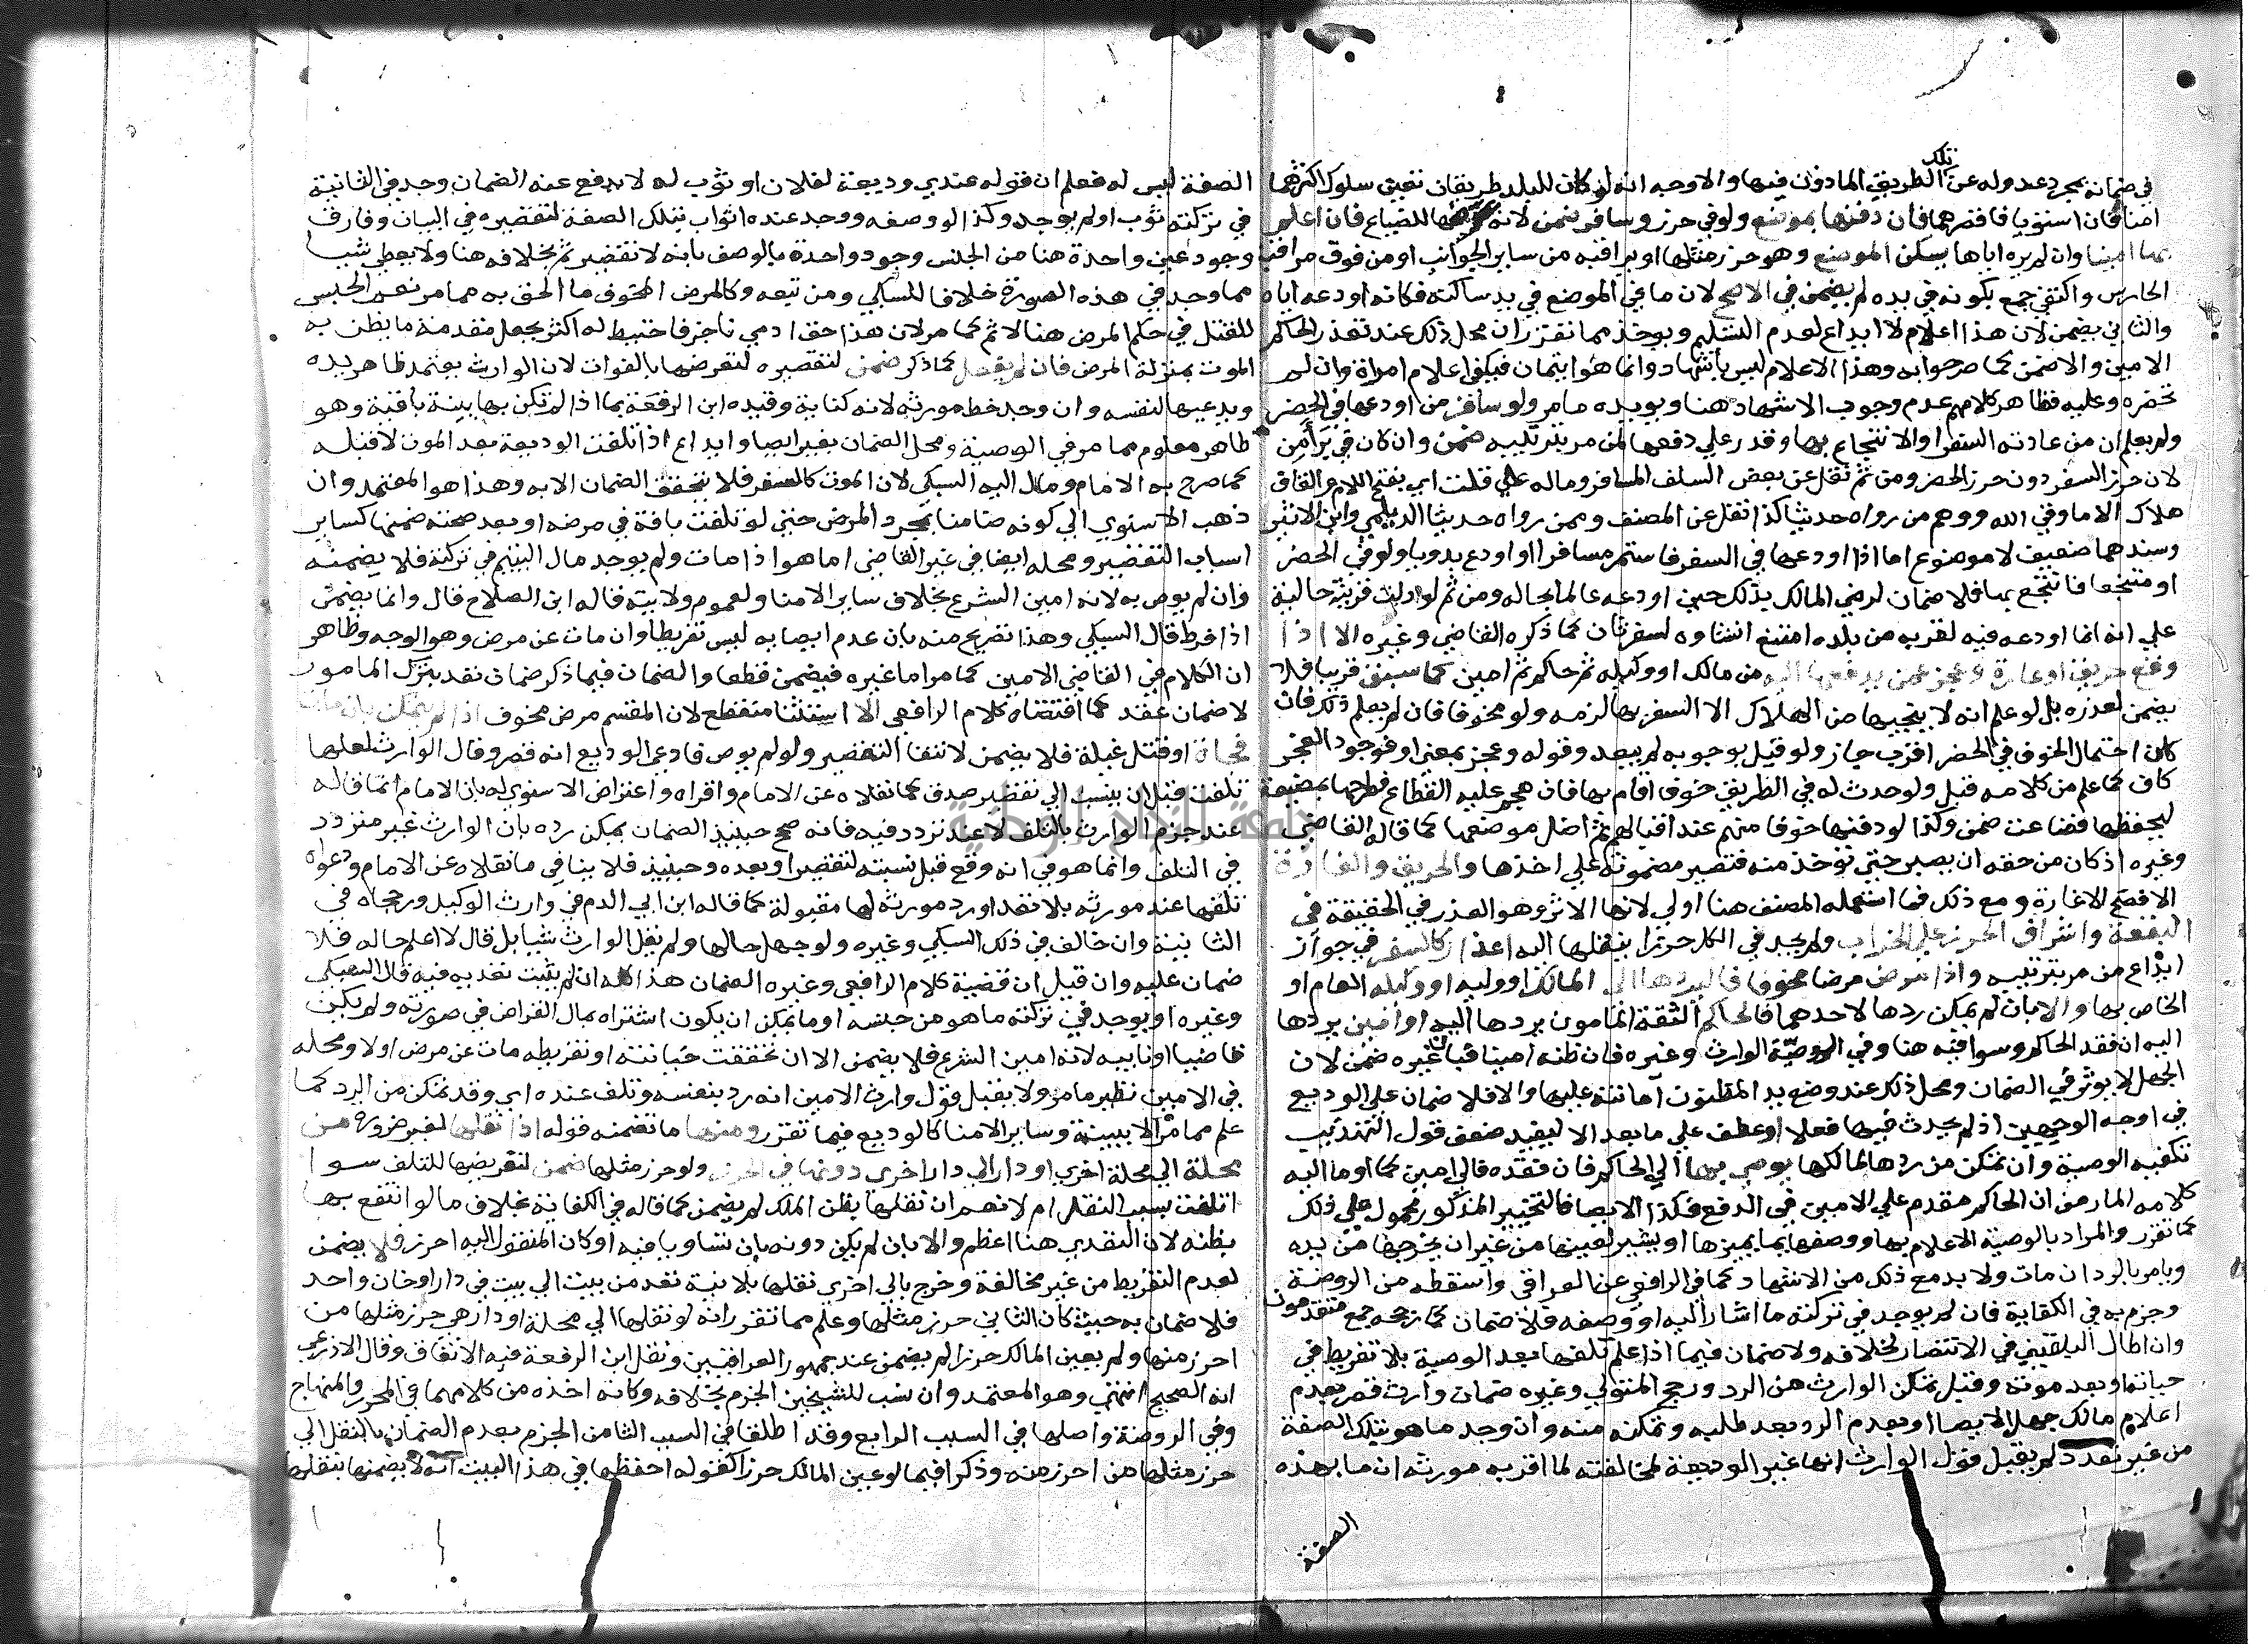 في ضمانه بمجرد عدوله عن تلك الطريق الماذون فيها والاوجه انه لو كان للبلد طريقان تعين سلوك اكثرهما
امنا فان استويا فاقصرهما فان دفنها بموضع ولو في حرز وسافر ضمن لانه عرضها للضياع فان اعلم
بها امينا وان لم يره اياها يسكن الموضع وهو حرز مثلها او يراقبه من ساير الجوانب او من فوق مراقبة
الحارس واكتفى جمع بكونه في يده لم يضمن في الاصح لان ما في الموضع في يد ساكنه فكانه اودعه اياه
والثاني يضمن لان هذا اعلام لا ايداع لعدم التسليم ويوخذ مما تقرر ان محل ذلك عند تعذر الحاكم
الامين والا ضمن كما صرحوا به وهذا الاعلام ليس باشهاد وانما هو ايتمان فيكفي اعلام امراة وان لم
تحضره وعليه فظاهر كلامهم عدم وجوب الاشهاد هنا ويويده ما مر ولو سافر من اودعها في الحضر
ولم يعلم ان من عادته السفر او الانتجاع بها وقدر على دفعها لمن مر بترتيبه ضمن وان كان في بر امن
لان حرز السفر دون حرز الحضر ومن ثم نقل عن بعض السلف المسافر وماله على قلت اي بفتح اللام والقاف
هلاك الا ما وقى الله ووهم من رواه حديثا كذا نقل عن المصنف وممن رواه حديثا الديلمي وابن الاثير
وسندهما ضعيف لا موضوع اما اذا اودعها في السفر فاستمر مسافرا او اودع بدويا ولو في الحضر
او منتجعا فانتجع بها فلا ضمان لرضى المالك بذلك حين اودعه عالما بحاله ومن ثم لو دلت قرينة حالية
على انه انما اودعه فيه لقربه من بلده امتنع انشاوه لسفر ثان كما ذكره القاضي وغيره الا اذا
وقع حريق او غارة وعجز عمن يدفعها اليه من مالك او وكيله ثم حاكم ثم امين كما سبق قريبا فلا
يضمن لعذره بل لو علم انه لا ينجيها من الهلاك الا السفر بها لزمه ولو مخوفا فان لم يعلم ذلك فان
كان احتمال الخوف في الحضر اقرب جاز ولو قيل بوجوبه لم يبعد وقوله وعجز بمعنى او فوجود العجز
كاف كما علم من كلامه قبل ولو حدث له في الطريق خوف اقام بها فان هجم عليه القطاع فطرحها بمضيعة
ليحفظها فضاعت ضمن وكذا لو دفنها خوفا منهم عند اقبالهم ثم اضل موضعها كما قاله القاضي
وغيره اذ كان من حقه ان يصبر حتى توخذ منه فتصير مضمونة على اخذها والحريق والغارة
الافصح الاغارة ومع ذلك فما استعمله المصنف هنا اولى لانها الاثر وهو العذر في الحقيقة في
البقعة واشراف الحرز على الخراب ولم يجد في الكل حرزا ينقلها اليه اعذار كالسفر في جواز
ايداع من مر بترتيبه واذا مرض مرضا مخوفا فليردها الى المالك او وليه او وكيله العام او
الخاص بها والا بان لم يمكن ردها لاحدهما فالحاكم الثقة المامون يردها اليه او امين يردها
اليه ان فقد الحاكم وسوا فيه هنا وفي الوصية الوارث وغيره فان ظنه امينا فبان غيره ضمن لان
الجهل لا يوثر في الضمان ومحل ذلك عند وضع يد المظنون امانته عليها والا فلا ضمان على الوديع
في اوجه الوجهين اذ لم يحدث فيها فعلا او عطف على ما بعد الا ليفيد ضعف قول التهذيب
تكفيه الوصية وان تمكن من ردها لمالكها يوصي بها الى الحاكم فان فقده فالى امين كما اوما اليه
كلامه المار من ان الحاكم مقدم على الامين في الدفع فكذا الايصا فالتخيير المذكور محمول على ذلك
كما تقرر والمراد بالوصية الاعلام بها ووصفها بما يميزها او يشير لعينها من غير ان يخرجها من يده
ويامر بالرد ان مات ولا بد مع ذلك من الاشهاد كما في الرافعي عن العراقي واسقطه من الروضة
وجزم به في الكفاية فان لم يوجد في تركته ما اشار اليه او وصفه فلا ضمان كما رجحه جمع متقدمون
وان اطال البلقيني في الانتصار لخلافه ولا ضمان فيما اذا علم تلفها بعد الوصية بلا تفريط في
حياته او بعد موته وقبل تمكن الوارث من الرد ورجح المتولي وغيره ضمان وارث قصر بعدم
اعلام مالك جهل الايصا او بعدم الرد بعد طلبه وتمكنه منه وان وجد ما هو بتلك الصفة
من غير تعدد لم يقبل قول الوارث انها غير الوديعة لمخالفته لما اقر به مورثه ان ما بهذه
الصفة
الصفة ليس له فعلم ان قوله عندي وديعة لفلان او ثوب له لا يدفع عنه الضمان وجد في الثانية
في تركته ثوب او لم يوجد وكذا لو وصفه ووجد عنده اثواب بتلك الصفة لتقصيره في البيان وفارق
وجود عين واحدة هنا من الجنس وجود واحدة بالوصف بانه لا تقصير ثم بخلافه هنا ولا يعطى شيا
مما وجد في هذه الصورة خلافا للسبكي ومن تبعه وكالمرض المخوف ما الحق به مما مر نعم الحبس
للقتل في حكم المرض هنا لا ثم كما مر لان هذا حق ادمي ناجز فاحتيط له اكثر بجعل مقدمة ما يظن به
الموت بمنزلة المرض فان لم يفعل كما ذكر ضمن لتقصيره لتعرضها بالفوات لان الوارث يعتمد ظاهر يده
ويدعيها لنفسه وان وجد خط مورثه لانه كناية وقيده ابن الرفعة بما اذا لم تكن بها بينة باقية وهو
ظاهر معلوم مما مر في الوصية ومحل الضمان بغير ايصا وايداع اذا تلفت الوديعة بعد الموت لا قبله
كما صرح به الامام ومال اليه السبكي لان الموت كالسفر فلا يتحقق الضمان الا به وهذا هو المعتمد وان
ذهب الاسنوي الى كونه ضامنا بمجرد المرض حتى لو تلفت بافة في مرضه او بعد صحته ضمنها كساير
اسباب التقصير ومحله ايضا في غير القاضي اما هو اذا مات ولم يوجد مال اليتيم في تركته فلا يضمنه
وان لم يوص به لانه امين الشرع بخلاف ساير الامنا ولعموم ولايته قاله ابن الصلاح قال وانما يضمن
اذا فرط قال السبكي وهذا تصريح منه بان عدم ايصايه ليس تفريطا وان مات عن مرض وهو الوجه وظاهر
ان الكلام في القاضي الامين كما مر اما غيره فيضمن قطعا والضمان فيما ذكر ضمان تعد بترك المامور
لا ضمان عقد كما اقتضاه كلام الرافعي الا استثنا منقطع لان المقسم مرض مخوف اذا لم يتمكن بان مات
فجاة او قتل غيلة فلا يضمن لانتفا التقصير ولو لم يوص فادعى الوديع انه قصر وقال الوارث لعلها
تلفت قبل ان ينسب الى تقصير صدق كما نقلاه عن الامام واقراه واعتراض الاسنوي له بان الامام انما قاله
عند جزم الوارث بالتلف لا عند تردده فيه فانه صحح حينيذ الضمان يمكن رده بان الوارث غير متردد
في التلف وانما هو في انه وقع قبل نسبته لتقصير او بعده وحينيذ فلا ينافي ما نقلاه عن الامام ودعواه
تلفها عند مورثه بلا تعد او رد مورثه لها مقبولة كما قاله ابن ابي الدم في وارث الوكيل ورجحاه في
الثانية وان خالف في ذلك السبكي وغيره ولو جهل حالها ولم يقل الوارث شيا بل قال لا اعلم حاله فلا
ضمان عليه وان قيل ان قضية كلام الرافعي وغيره الضمان هذا كله ان لم يثبت تعديه فيه قال السبكي
وغيره او يوجد في تركته ما هو من جنسه او ما يمكن ان يكون اشتراه بمال القراض في صورته ولم يكن
قاضيا او نايبه لانه امين الشرع فلا يضمن الا ان تحققت خيانته او تفريطه مات عن مرض او لا ومحله
في الامين نظير ما مر ولا يقبل قول وارث الامين انه رد بنفسه وتلف عنده اي وقد تمكن من الرد كما
علم مما مر الا ببينة وساير الامنا كالوديع فيما تقرر ومنها ما تضمنه قوله اذا نقلها لغير ضرورة من
محلة الى محلة اخرى او دار الى دار اخرى دونها في الحرز ولو حرز مثلها ضمن لتعريضها للتلف سوا
اتلفت بسبب النقل ام لا نعم ان نقلها يظن الملك لم يضمن كما قاله في الكفاية بخلاف ما لو انتفع بها
بظنه لان التعدي هنا اعظم والا بان لم يكن دونه بان تساويا فيه او كان المنقول اليه احرز فلا يضمن
لعدم التفريط من غير مخالفة وخرج بالى اخرى نقلها بلا نية تعد من بيت الى بيت في دار او خان واحد
فلا ضمان به حيث كان الثاني حرز مثلها وعلم مما تقرر انه لو نقلها الى محلة او دار هو حرز مثلها من
احرز منها ولم يعين المالك حرزا لم يضمن عند جمهور العراقيين ونقل ابن الرفعة فيه الاتفاق وقال الاذرعي
انه الصحيح انتهى وهو المعتمد وان نسب للشيخين الجزم بخلافه وكانه اخذه من كلامهما في المحرر والمنهاج
وفي الروضة واصلها في السبب الرابع وقد اطلقا في السبب الثامن الجزم بعدم الضمان بالنقل الى
حرز مثلها من احرز منه وذكرا فيما لو عين المالك حرزا كقوله احفظها في هذا البيت انه لا يضمنها بنقلها